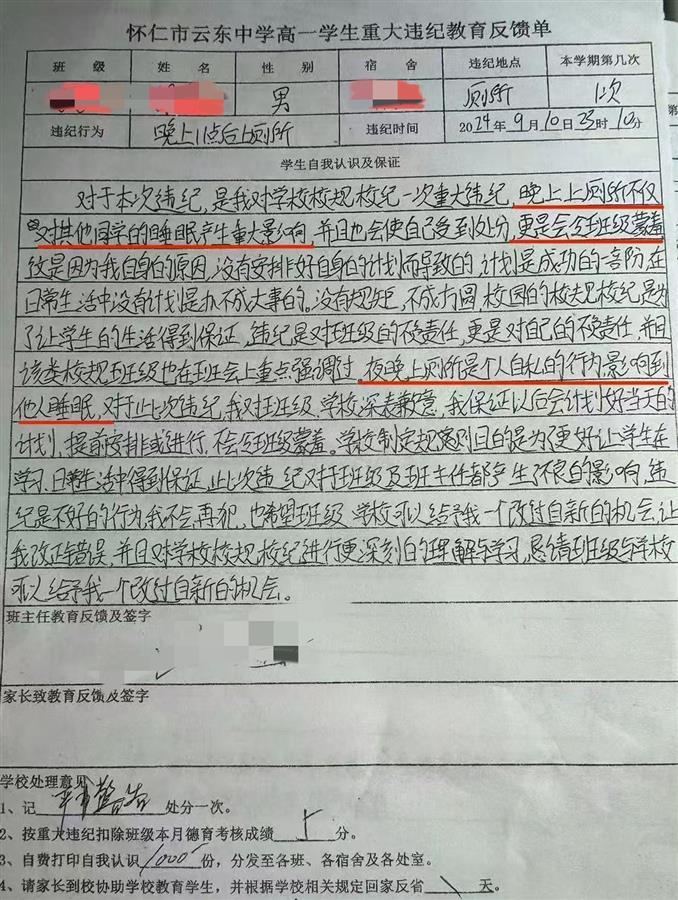 怀仁市云东中学高一学生重大违纪教育反馈单
班 级 姓 名 性 别 宿 舍 违纪地点 本学期第几次
男 厕所 1次
违纪行为 晚上11点后上厕所 违纪时间 2024年9月10日23时10分
学生自我认识及保证
对于本次违纪,是我对学校校规校纪一次重大违纪,晚上上厕所不仅
对其他同学的睡眠产生重大影响,并且也会使自己受到处分,更是会令班级蒙羞
这是因为我自身的原因,没有安排好自身的计划而导致的,计划是成功的一部分,在
日常生活中没有计划是办不成大事的。没有规矩,不成方圆,校园的校规校纪是为
了让学生的生活得到保证,违纪是对班级的不负责任,更是对自己的不负责任,并且
该类校规班级也在班会上重点强调过,夜晚上厕所是个人自私的行为,影响到
他人睡眠,对于此次违纪,我对班级、学校深表歉意,我保证以后会计划好当天的
计划,提前安排或进行,不会令班级蒙羞。学校制定规则目的是为了更好让学生在
学习、日常生活中得到保证,此次违纪对于班级及班主任都产生了不良的影响,违
纪是不好的行为,我不会再犯,也希望班级、学校可以给予我一个改过自新的机会,让
我改正错误,并且对学校校规、校纪进行更深刻的理解与学习,恳请班级与学校
可以给予我一个改过自新的机会。
班主任教育反馈及签字
家长致教育反馈及签字
学校处理意见
1、记 严重警告 处分一次。
2、按重大违纪扣除班级本月德育考核成绩 分。
3、自费打印自我认识 1000 份,分发至各班、各宿舍及各处室。
4、请家长到校协助学校教育学生,并根据学校相关规定回家反省 \ 天。